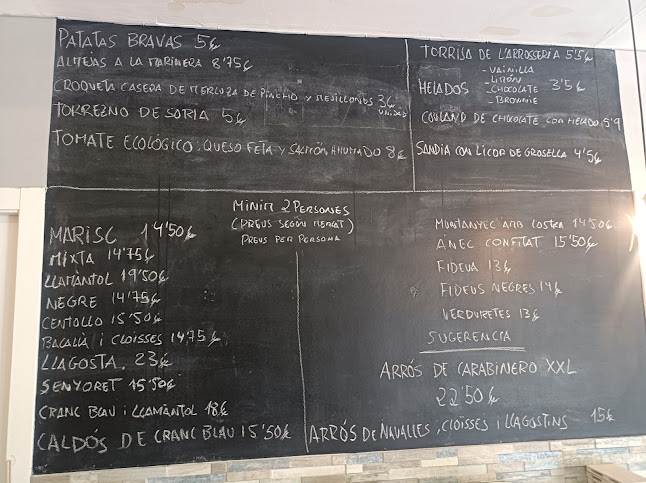 PATATAS BRAVAS 5€
ALMEJAS A LA MARINERA 8'75€
CROQUETA CASERA DE MERLUZA DE PINCHO Y MEJILLONES 3€ UNIDAD
TORREZNO DE SORIA 5€
TOMATE ECOLÓGICO, QUESO FETA Y SALMÓN AHUMADO 8€
TORRIJA DE L'ARROSSERIA 5'5€
HELADOS 3'5€
- VAINILLA
- LIMÓN
- CHOCOLATE
- BROWNIE
COULAND DE CHOCOLATE CON HELADO 5'9
SANDIA CON LICOR DE GROSELLA 4'5€
MINIM 2 PERSONES
(PREUS SEGÓN MERCAT)
PREUS PER PERSONA
MARISC 14'50€
MIXTA 14'75€
LLAMÀNTOL 19'50€
NEGRE 14'75€
CENTOLLO 15'50€
BACALLÀ I CLOÏSSES 14'75€
LLAGOSTA 23€
SENYORET 15'50€
CRANC BLAU I LLAMÀNTOL 18€
CALDÓS DE CRANC BLAU 15'50€
MUNTANYENC AMB COSTRA 14'50€
ÀNEC CONFITAT 15'50€
FIDEUA 13€
FIDEUS NEGRES 14€
VERDURETES 13€
SUGERENCIA
ARRÓS DE CARABINERO XXL
22'50€
ARRÓS DE NAVALLES, CLOÏSSES I LLAGOSTINS 15€